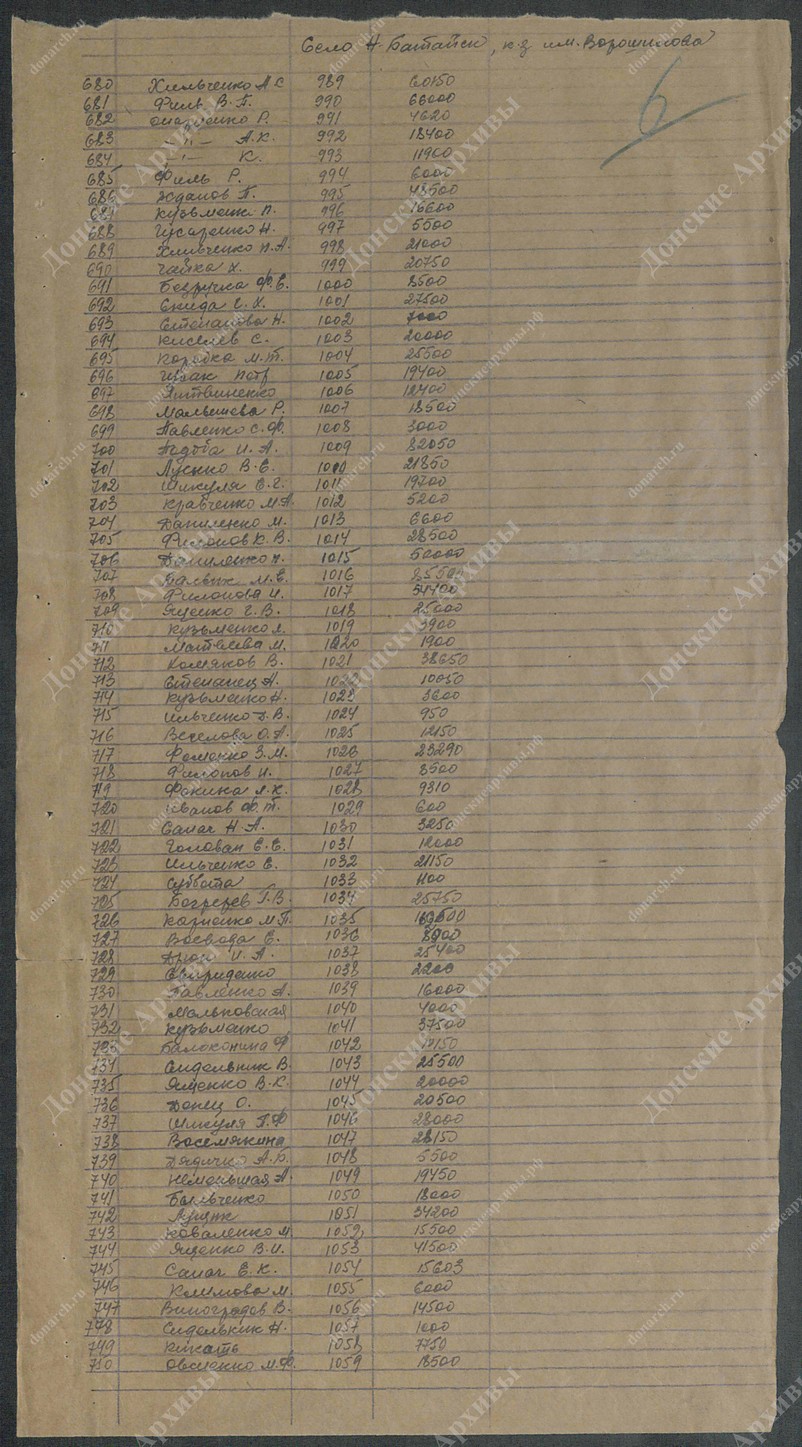 Село Н-Батайск, к-з им. Ворошилова
6
680 Хильченко А.С 989 60150
681 Филь В.П. 990 66000
682 Р. 991 4620
683 –"– А.К. 992 18400
684 –"– К. 993 11900
685 Филь Р. 994 6000
686 Жданов П. 995 48500
687 Кузьменк П. 996 16600
688 Гусаренко Н. 997 5500
689 Хильченко П.А. 998 21000
690 Чайка Х. 999 20750
691 Безручка Ф.Е. 1000 8500
692 Скида С.Х. 1001 27500
693 Степанова Н. 1002 7000
694 Киселев С. 1003 20000
695 Коробка М.Т. 1004 25500
696 Петр 1005 19400
697 Литвиненко 1006 12400
698 Малышева Р. 1007 18500
699 Павленко С.Ф. 1008 3000
700 И.А. 1009 82050
701 Луенко В.Е. 1010 21850
702 Шикуля Е.Г. 1011 19700
703 Кравченко М.А. 1012 5200
704 Даниленко М. 1013 6600
705 Филонов К.В. 1014 28500
706 Даниленко Н. 1015 50000
707 М.Е. 1016 85500
708 Филонова И. 1017 34400
709 Яценко Г.В. 1018 25000
710 Кузьменко Л. 1019 3900
711 Матвеева М. 1020 1900
712 Хомяков В. 1021 38650
713 Степанец А. 1022 10050
714 Кузьменко Н. 1023 3600
715 Ильченко В. 1024 950
716 Веселова О.А. 1025 12150
717 Фоменко З.М. 1026 23290
718 Филонов И. 1027 8500
719 Фокина Л.К. 1028 9310
720 Иванов Ф.Т. 1029 600
721 Сапач Н.А. 1030 3250
722 Голован Е.Е. 1031 12000
723 Ильченко Е. 1032 21150
724 Суббота 1033 1100
725 Г.В. 1034 25750
726 Карпенко М.П. 1035
727 Воевода Е. 1036 8900
728 И.А. 1037 25400
729 Свириденко 1038 2200
730 Павленко А. 1039 16000
731 Мальковская 1040 4000
732 Кузьменко 1041 37500
733 Балоконина Ф 1042
734 Сидельник В. 1043 25500
735 Ященко В.К. 1044 20000
736 Донец О. 1045 20500
737 Шикуля П.Ф 1046 28000
738 Восемякина 1047 28150
739 Дядичко А.Б. 1048 5500
740 Неменьшая А. 1049 19450
741 Быльченко 1050 18000
742 Лущик 1051 34200
743 Коваленко М. 1052 15500
744 Ященко В.И. 1053 41500
745 Сапач Е.К. 1054 15603
746 Климова М. 1055 6000
747 Виноградов В. 1056 14500
748 Сидельник Н. 1057 1000
749 Кикоть 1058 7750
750 Овсиенко М.Ф. 1059 18500
Донские Архивы
donarch.ru
донскиеархивы.рф